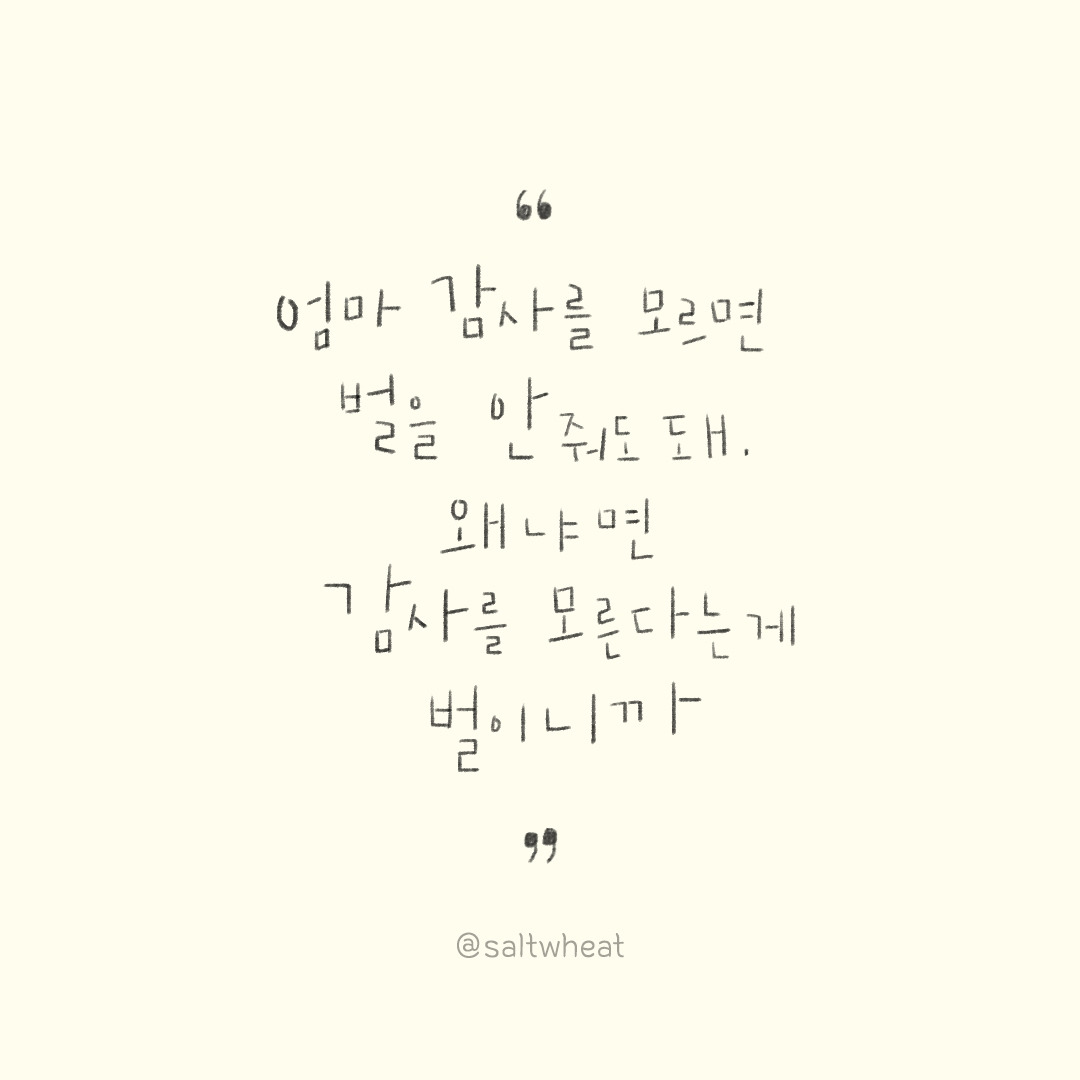 “
엄마 감사를 모르면
벌을 안 줘도 돼.
왜냐면
감사를 모른다는게
벌이니까
”
@saltwheat